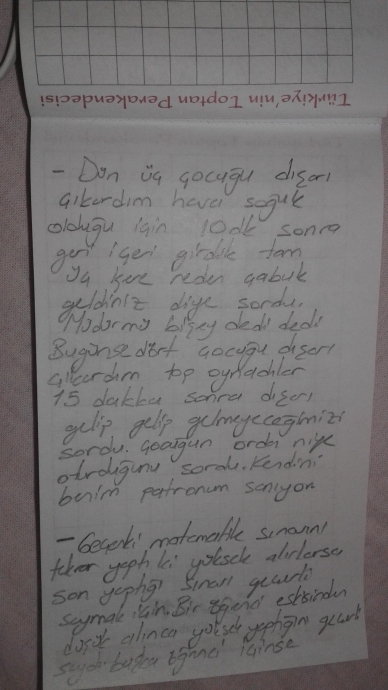 Türkiye'nin Toptan Perakendecisi
- Dün üç çocuğu dışarı
çıkardım hava soğuk
olduğu için 10 dk sonra
geri içeri girdik tam
üç kere neden çabuk
geldiniz diye sordu.
Müdürmü bişey dedi dedi
Bugünse dört çocuğu dışarı
çıkardım top oynadılar
15 dakka sonra dışarı
gelip gelip gelmeyeceğimizi
sordu. çocuğun orda niye
oturduğunu sordu. Kendini
benim patronum sanıyor
- Geçenki matematik sınavını
tekrar yaptı ki yüksek alırlarsa
son yaptığı sınavı geçerli
saymak için. Bir öğrenci eskisinden
düşük alınca yüksek yaptığını geçerli
saydı başka öğrenci içinse